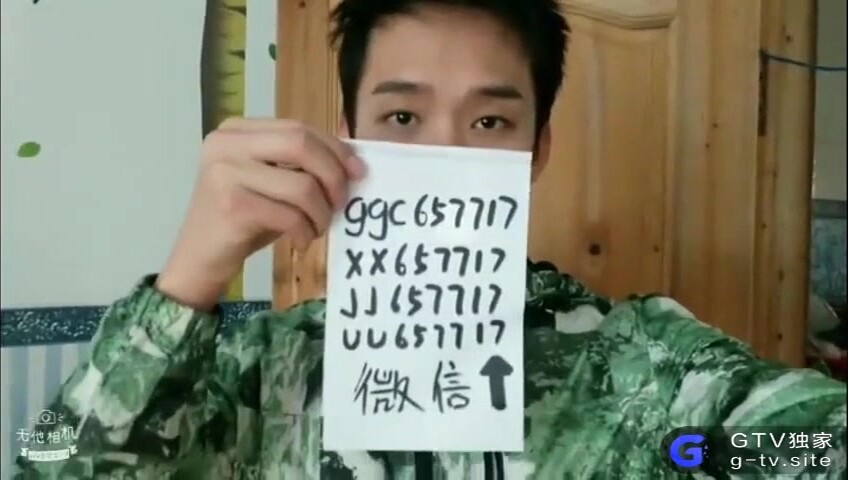 ggc657717
xx657717
JJ657717
uu657717
微信↑
无他相机
GTV独家
g-tv.site